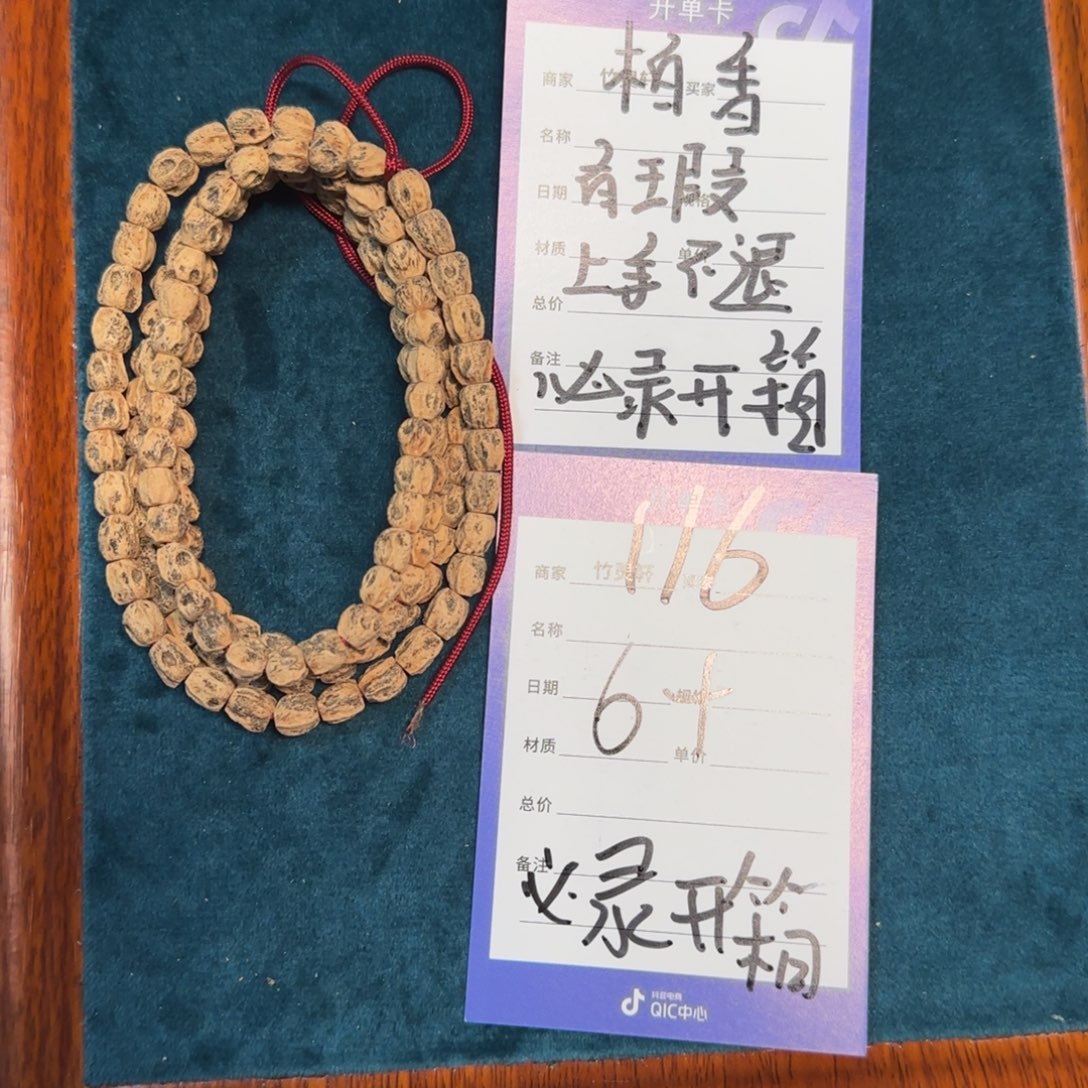 开单卡
商家 买家
柏香
名称
日期 规格
有瑕
材质 单价
上手不退
总价
备注
必录开箱
开单卡
116
商家 竹灵轩 买家
名称
日期 规格
6+
材质 单价
总价
备注
必录开箱
抖音电商
QIC中心